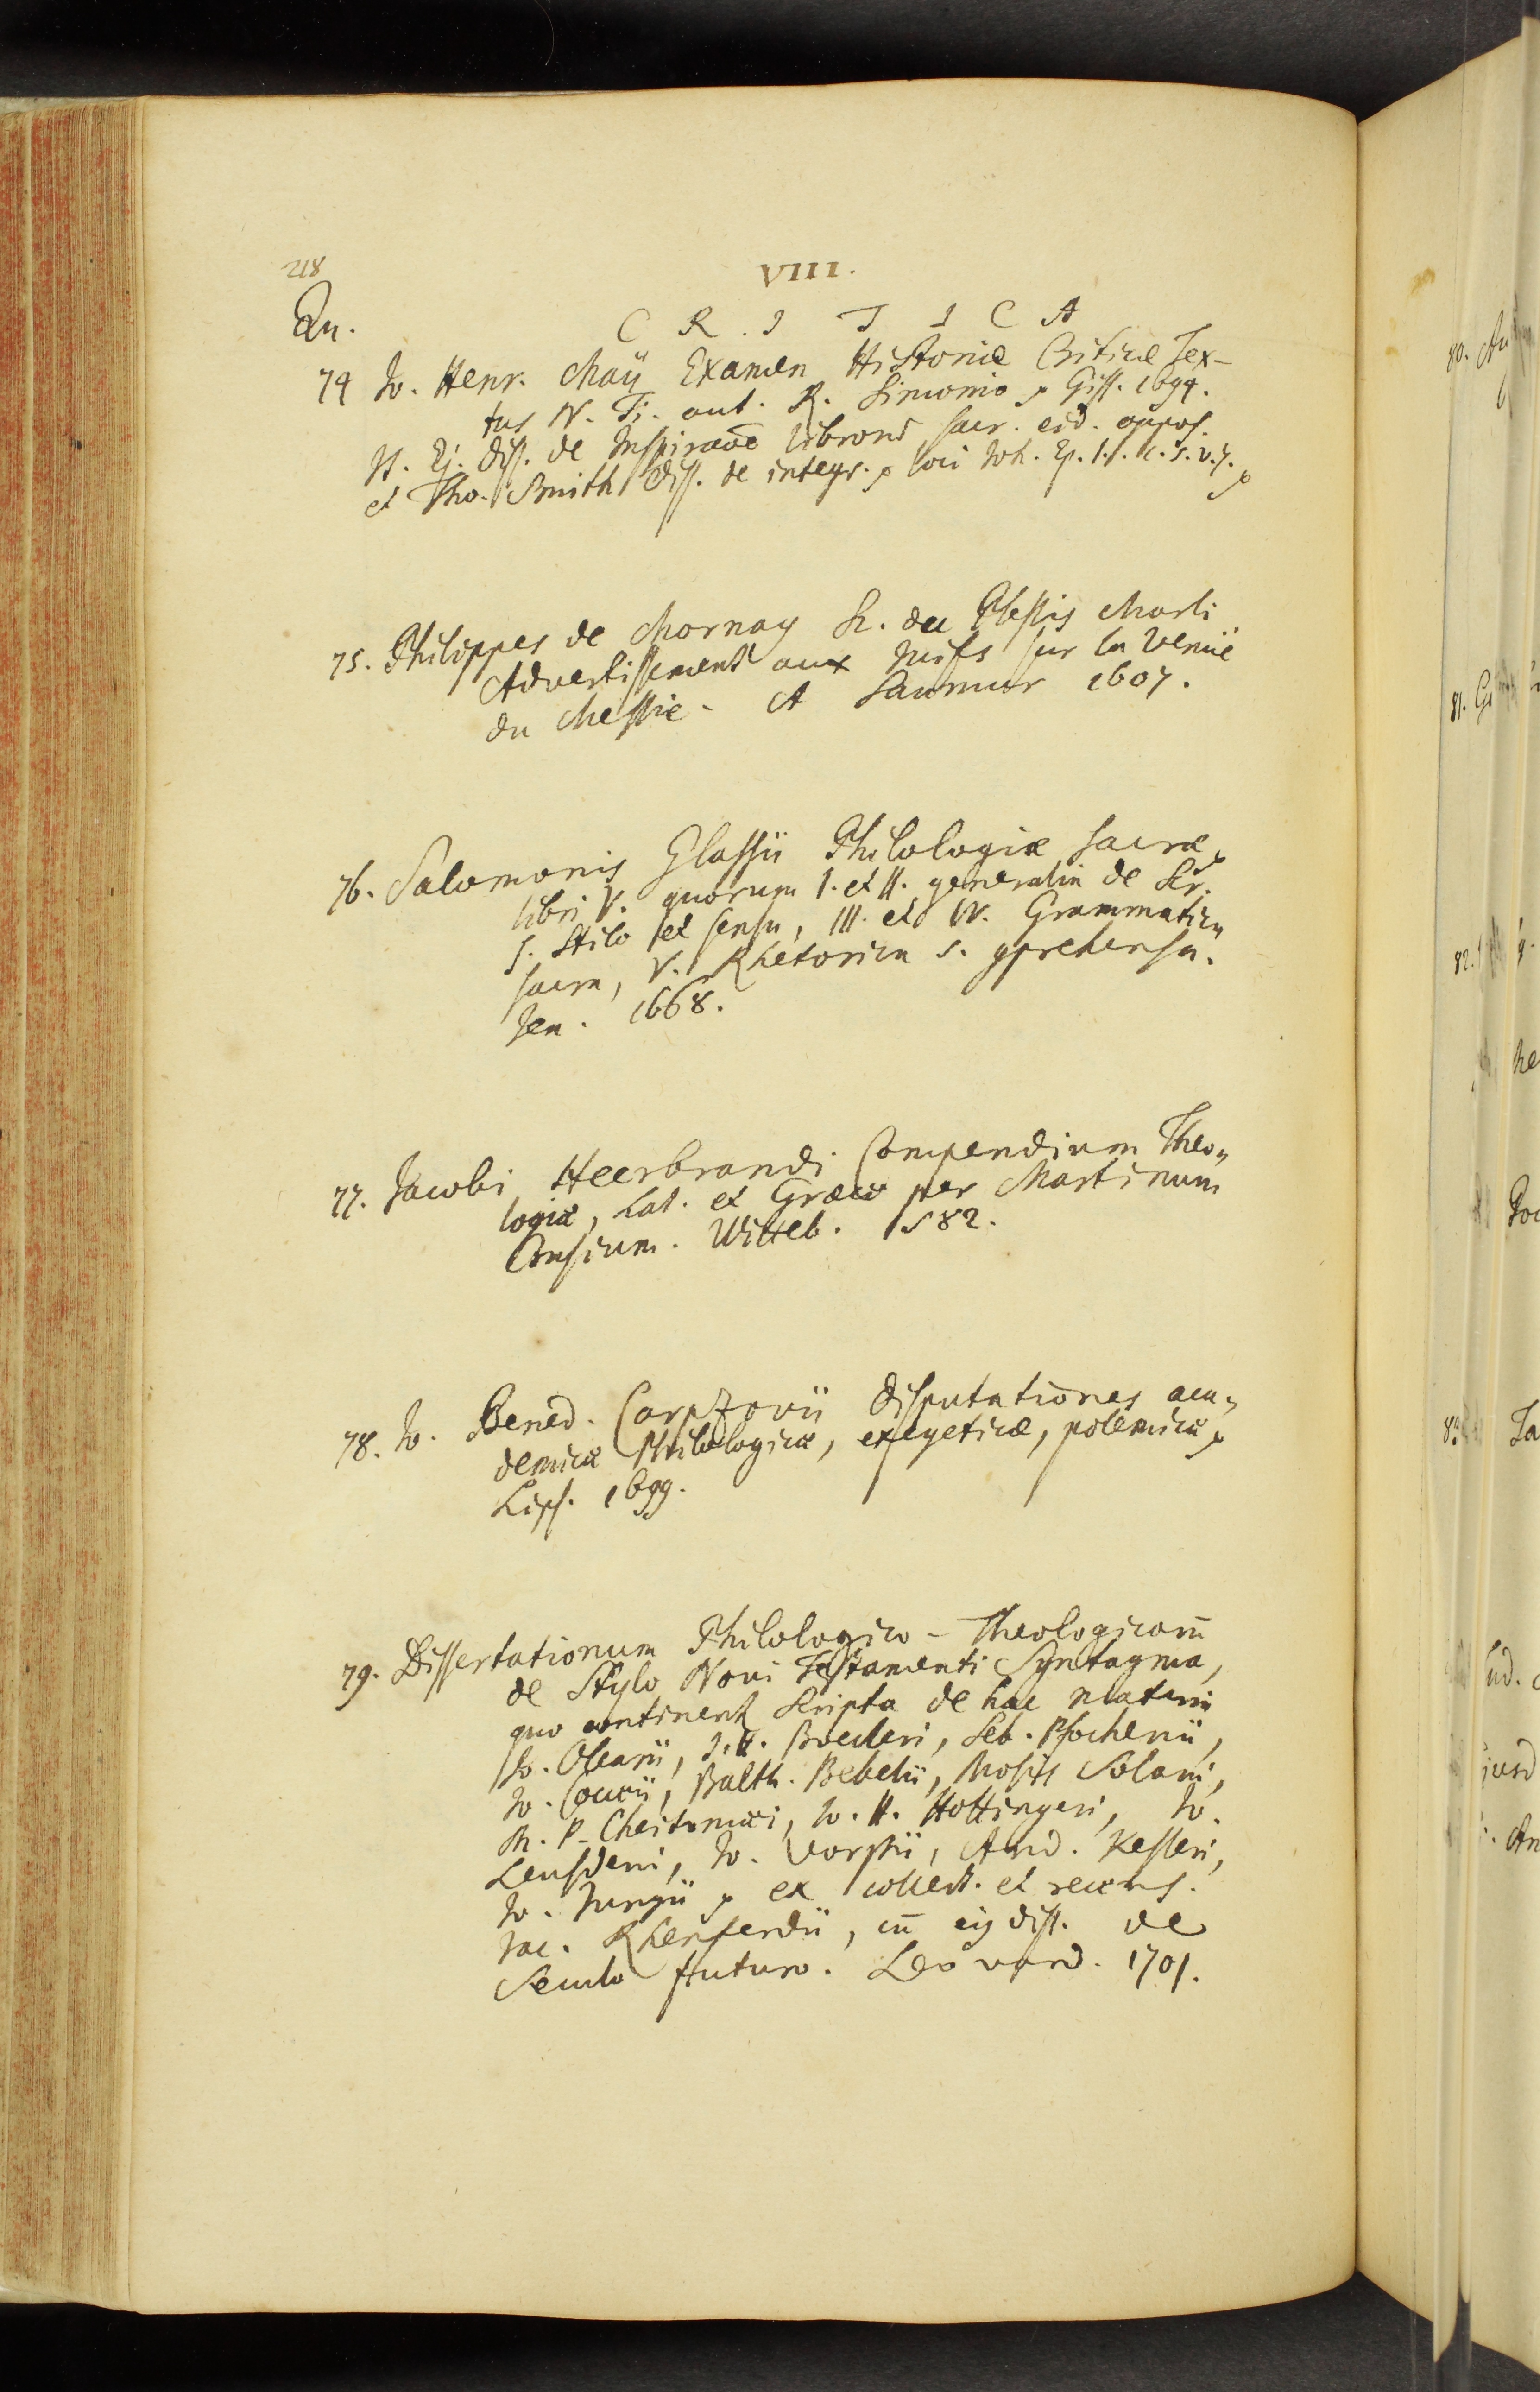 218
VIII.
Qu.
C R I T I C A
74 Jo. Henr. Maÿ Examen Historiæ Criticæ Tex-
tus N. T. aut. R. Simonio p Giss. 1694.
It. Ej. diss. de Inspiraōe librorū sacr. eid. oppos.
et Tho. Smith diss. de integr. p loci Joh. Ep. I. c. 5. v. 7. p
75. Philippes de Mornay Sr. du Plessis Marli
Advertissement aux Juifs sur la Venüe
du Messie. A Saumur 1607.
76. Salomonis Glassii Philologiæ sacræ,
libri V. quorum I. et II. generalia de Scr.
S. stilo et sensu, III. et IV. Grammatica
sacra, V. Rhetorica s. gprehensa.
Jen. 1668.
77. Jacobi Heerbrandi Compendium Theo-
logiæ, Lat. et Græce per Martinum
Crusium. Witteb. 1582.
78. Jo. Bened. Carpzovii disputationes aca-
demicæ Philologicæ, exegeticæ, polemicæ p
Lips. 1699.
79. Dissertationum Philologico-Theologicarū
de Stylo Novi Testamenti Syntagma,
quo continent scripta de hac materia
Jo. Olearii, J. H. Boecleri, Seb. Pfochenii,
Jo. Coccii, Balth. Bebelii, Mosis Solani,
M. P. Cheitomæi, Jo. H. Hottingeri, Jo.
Leusdeni, Jo. Vorstii, And. Kesleri,
Jo. Jungii p ex collect. et recens.
Jac. Rhenferdii, cū ejs diss. de
Seculo futuro. Leovard. 1701.